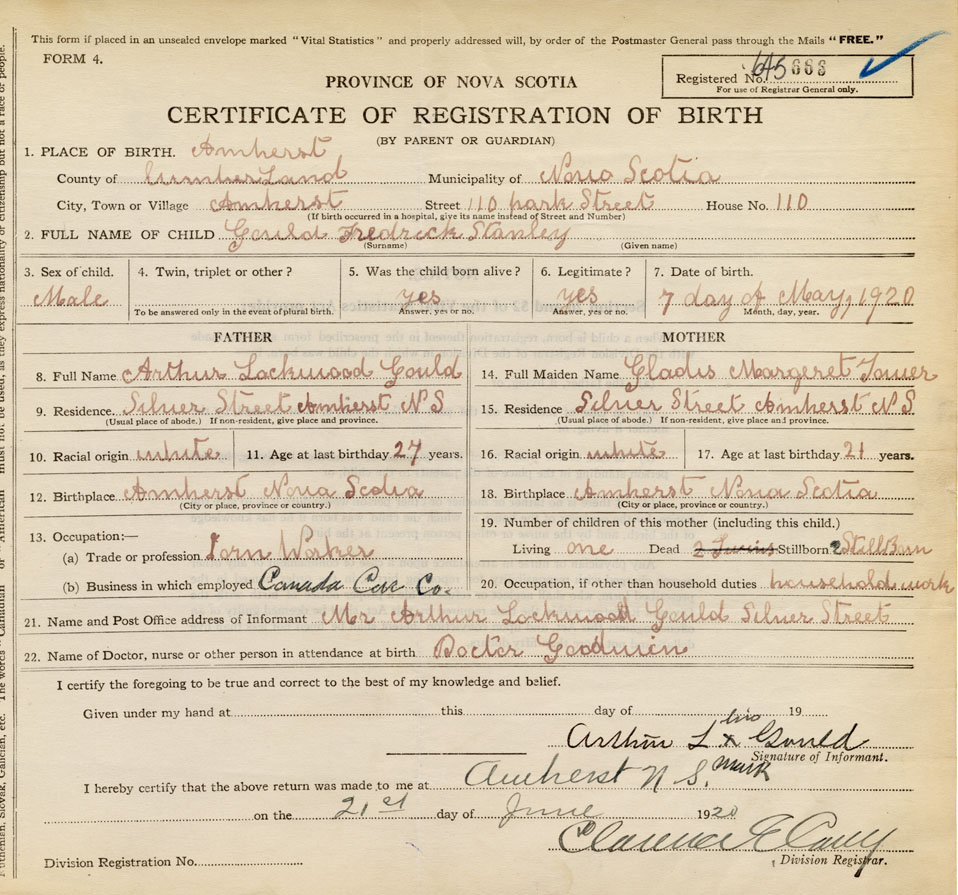 This form if placed in an unsealed envelope marked "Vital Statistics" and properly addressed will, by order of the Postmaster General pass through the Mails "FREE."
FORM 4.
Registered No. 645668
For use of Registrar General only.
PROVINCE OF NOVA SCOTIA
CERTIFICATE OF REGISTRATION OF BIRTH
(BY PARENT OR GUARDIAN)
1. PLACE OF BIRTH. Amherst
County of Cumberland Municipality of Nova Scotia
City, Town or Village Amherst Street 110 park Street House No. 110
(If birth occurred in a hospital, give its name instead of Street and Number)
2. FULL NAME OF CHILD Gould Fredrick Stanley
(Surname) (Given name)
3. Sex of child. 4. Twin, triplet or other? 5. Was the child born alive? 6. Legitimate? 7. Date of birth.
Male yes yes 7 day of May, 1920
To be answered only in the event of plural birth. Answer, yes or no. Answer, yes or no. Month, day, year.
FATHER MOTHER
8. Full Name Arthur Lockwood Gould 14. Full Maiden Name Gladis Margeret Tower
9. Residence. Silver Street Amherst N S 15. Residence Silver Street Amherst N S
(Usual place of abode.) If non-resident, give place and province. (Usual place of abode.) If non-resident, give place and province.
10. Racial origin white 11. Age at last birthday 27 years. 16. Racial origin white 17. Age at last birthday 21 years.
12. Birthplace Amherst Nova Scotia 18. Birthplace Amherst Nova Scotia
(City or place, province or country.) (City or place, province or country.)
13. Occupation:— 19. Number of children of this mother (including this child.)
(a) Trade or profession Living one Dead Stillborn 2 StillBorn
(b) Business in which employed Canada Car Co. 20. Occupation, if other than household duties household work
21. Name and Post Office address of Informant Mr Arthur Lockwood Gould Silver Street
22. Name of Doctor, nurse or other person in attendance at birth Doctor Goodwin
I certify the foregoing to be true and correct to the best of my knowledge and belief.
Given under my hand at this day of 19
Arthur L his x Gould
mark
Signature of Informant.
I hereby certify that the above return was made to me at Amherst N S.
on the 21st day of June 1920
Division Registration No.
Division Registrar.